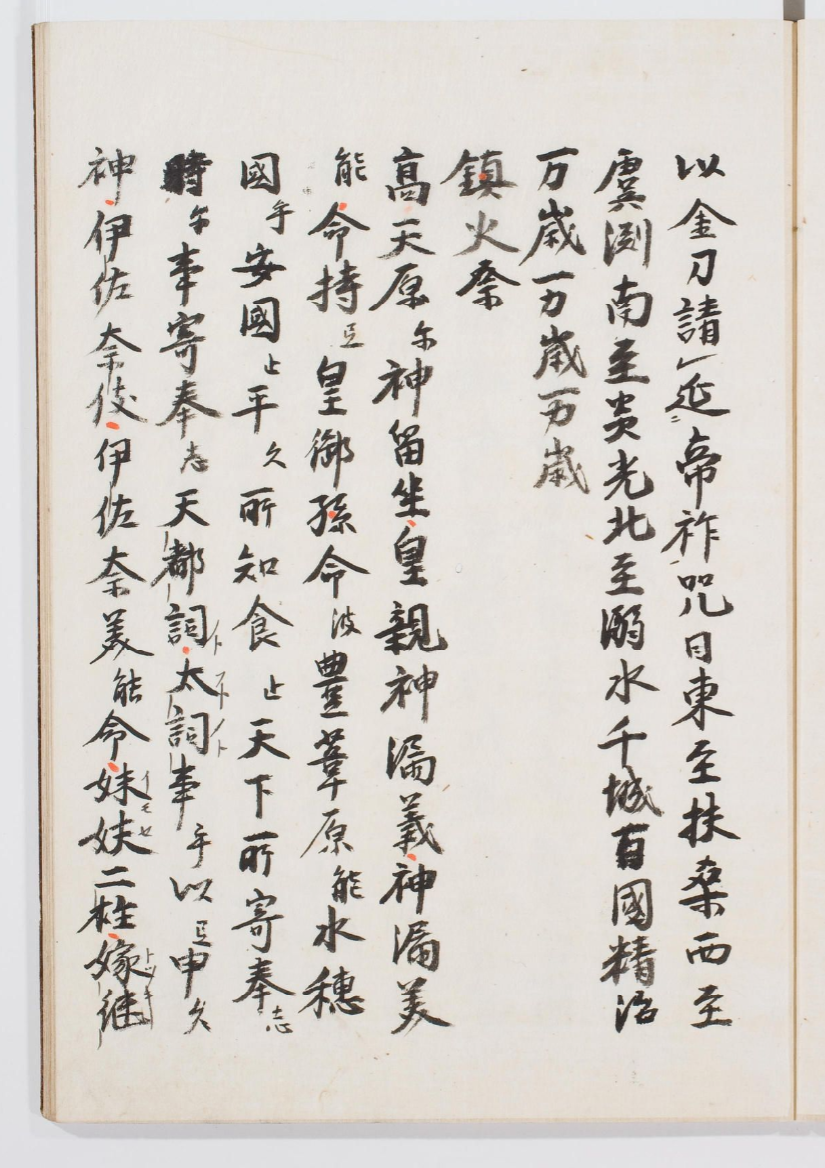 以金刀請延帝祚咒曰東至扶桑西至
虞渕南至炎光北至溺水千城百國精治
万歳万歳万歳
鎮火祭
高天原尓神留坐皇親神漏義神漏美
能命持弖皇御孫命波豊葦原能水穂
國乎安國止平久所知食止天下所寄奉志
時尓事寄奉志天都詞太詞事乎以弖申久
神伊佐奈伎伊佐奈美能命妹妋二柱嫁継